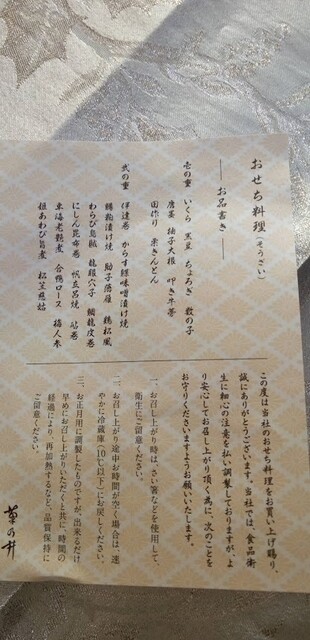 おせち料理（そうざい）
― お品書き ―
壱の重 いくら 黒豆 ちょろぎ 数の子
唐墨 柚子大根 叩き牛蒡
田作り 栗きんとん
弐の重 伊達巻 からすみ 味噌漬け焼
鶴松風
わらび烏賊 龍眼穴子 鯛龍皮巻
にしん昆布巻
車海老艶煮 合鴨ロース 梅人参
姫あわび旨煮 松笠慈姑
この度は当社のおせち料理をお買い上げ賜り、
誠にありがとうございます。当社では、食品衛
生に細心の注意を払い調製しておりますが、よ
り安心してお召し上がり頂く為に、次のことを
お守りくださいますようお願いいたします。
一、お召し上がり時は、さい箸などを使用して、
衛生にご留意ください。
二、お召し上がり途中お時間が空く場合は、速
やかに冷蔵庫（10℃以下）にお戻しください。
三、お正月用に調製したものですが、出来るだけ
早めにお召し上がりいただくと共に、時間の
経過により、再加熱するなど、品質保持に
ご留意ください。
菊の井